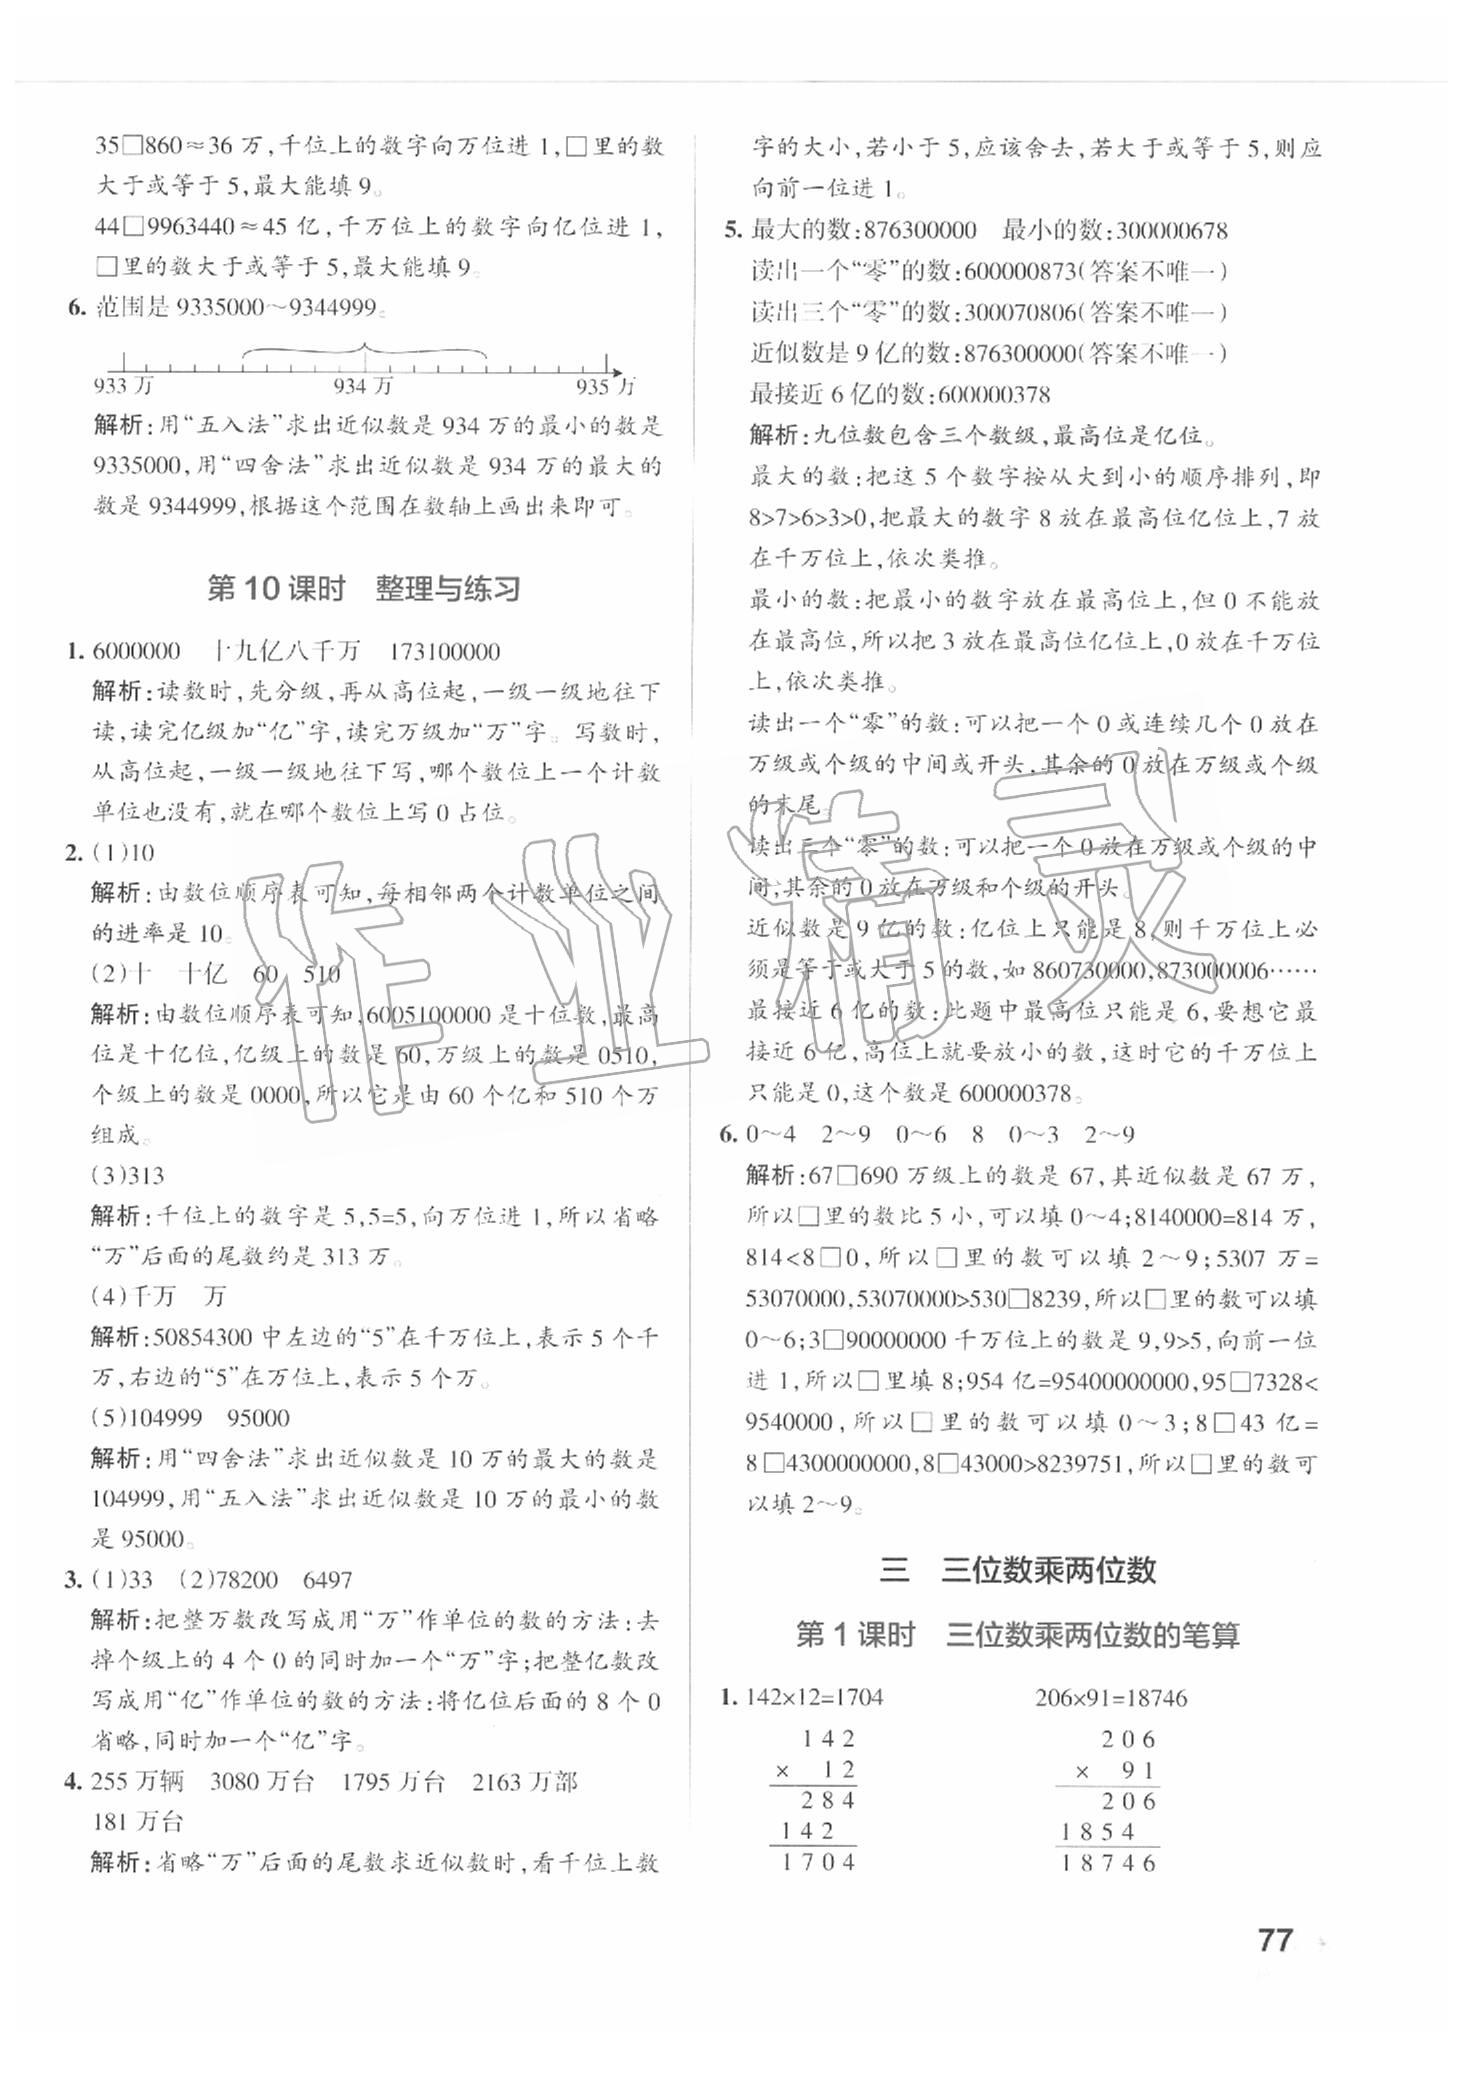 35□860≈36 万,千位上的数字向万位进 1,□里的数
大于或等于 5,最大能填 9。
44□9963440≈45 亿,千万位上的数字向亿位进 1,
□里的数大于或等于 5,最大能填 9。
6. 范围是 9335000～9344999。
933 万 934 万 935 万
解析:用“五入法”求出近似数是 934 万的最小的数是
9335000,用“四舍法”求出近似数是 934 万的最大的
数是 9344999,根据这个范围在数轴上画出来即可。
第 10 课时 整理与练习
1. 6000000 十九亿八千万 173100000
解析:读数时,先分级,再从高位起,一级一级地往下
读,读完亿级加“亿”字,读完万级加“万”字。写数时,
从高位起,一级一级地往下写,哪个数位上一个计数
单位也没有,就在哪个数位上写 0 占位。
2. (1)10
解析:由数位顺序表可知,每相邻两个计数单位之间
的进率是 10。
(2)十 十亿 60 510
解析:由数位顺序表可知,6005100000 是十位数,最高
位是十亿位,亿级上的数是 60,万级上的数是 0510,
个级上的数是 0000,所以它是由 60 个亿和 510 个万
组成。
(3)313
解析:千位上的数字是 5,5=5,向万位进 1,所以省略
“万”后面的尾数约是 313 万。
(4)千万 万
解析:50854300 中左边的“5”在千万位上,表示 5 个千
万,右边的“5”在万位上,表示 5 个万。
(5)104999 95000
解析:用“四舍法”求出近似数是 10 万的最大的数是
104999,用“五入法”求出近似数是 10 万的最小的数
是 95000。
3. (1)33 (2)78200 6497
解析:把整万数改写成用“万”作单位的数的方法:去
掉个级上的 4 个 0 的同时加一个“万”字;把整亿数改
写成用“亿”作单位的数的方法:将亿位后面的 8 个 0
省略,同时加一个“亿”字。
4. 255 万辆 3080 万台 1795 万台 2163 万部
181 万台
解析:省略“万”后面的尾数求近似数时,看千位上数
字的大小,若小于 5,应该舍去,若大于或等于 5,则应
向前一位进 1。
5. 最大的数:876300000 最小的数:300000678
读出一个“零”的数:600000873(答案不唯一)
读出三个“零”的数:300070806(答案不唯一)
近似数是 9 亿的数:876300000(答案不唯一)
最接近 6 亿的数:600000378
解析:九位数包含三个数级,最高位是亿位。
最大的数:把这 5 个数字按从大到小的顺序排列,即
8>7>6>3>0,把最大的数字 8 放在最高位亿位上,7 放
在千万位上,依次类推。
最小的数:把最小的数字放在最高位上,但 0 不能放
在最高位,所以把 3 放在最高位亿位上,0 放在千万位
上,依次类推。
读出一个“零”的数:可以把一个 0 或连续几个 0 放在
万级或个级的中间或开头,其余的 0 放在万级或个级
的末尾。
读出三个“零”的数:可以把一个 0 放在万级或个级的中
间,其余的 0 放在万级和个级的开头。
近似数是 9 亿的数:亿位上只能是 8,则千万位上必
须是等于或大于 5 的数,如 860730000,873000006……
最接近 6 亿的数:此题中最高位只能是 6,要想它最
接近 6 亿,高位上就要放小的数,这时它的千万位上
只能是 0,这个数是 600000378。
6. 0～4 2～9 0～6 8 0～3 2～9
解析:67□690 万级上的数是 67,其近似数是 67 万,
所以□里的数比 5 小,可以填 0～4;8140000=814 万,
814<8□0,所以□里的数可以填 2～9;5307 万=
53070000,53070000>530□8239,所以□里的数可以填
0～6;3□90000000 千万位上的数是 9,9>5,向前一位
进 1,所以□里填 8;954 亿=95400000000,95□7328<
9540000,所以□里的数可以填 0～3;8□43 亿=
8□4300000000,8□43000>8239751,所以□里的数可
以填 2～9。
三 三位数乘两位数
第 1 课时 三位数乘两位数的笔算
1. 142×12=1704 206×91=18746
142 206
× 12 × 91
284 206
142 1854
1704 18746
77
作业精灵